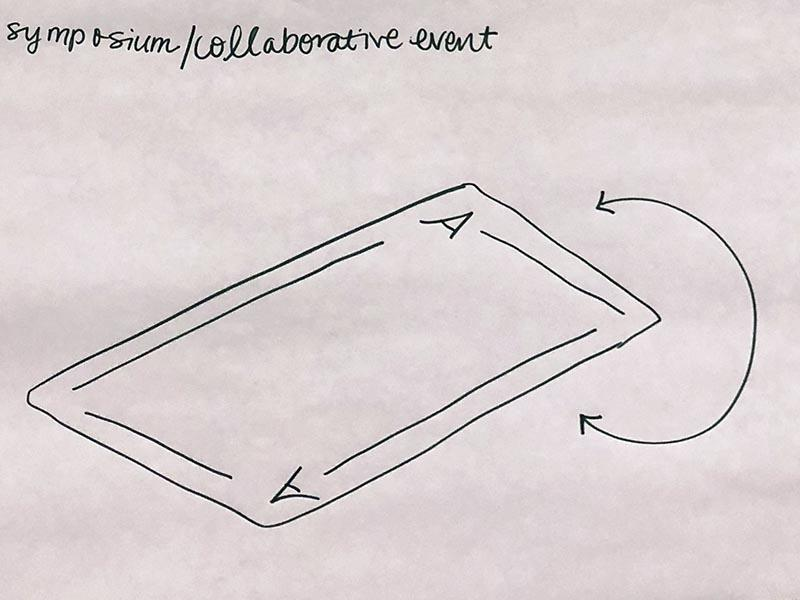 symposium/collaborative event
A
A